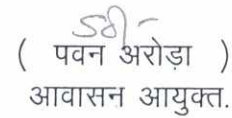 Sd/-
( पवन अरोड़ा )
आवासन आयुक्त.